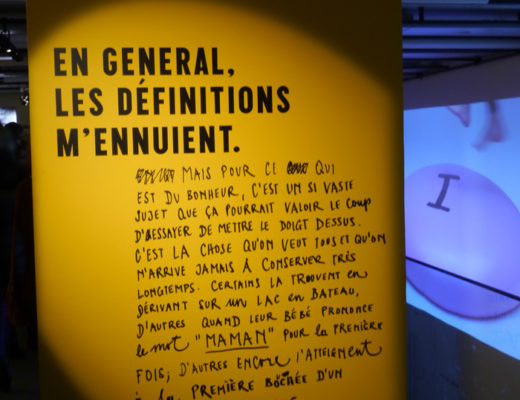 EN GENERAL,
LES DÉFINITIONS
M'ENNUIENT.
MAIS POUR CE QUI
EST DU BONHEUR, C'EST UN SI VASTE
SUJET QUE ÇA POURRAIT VALOIR LE COUP
D'ESSAYER DE METTRE LE DOIGT DESSUS.
C'EST LA CHOSE QU'ON VEUT TOUS ET QU'ON
N'ARRIVE JAMAIS À CONSERVER TRÈS
LONGTEMPS. CERTAINS LA TROUVENT en
DÉRIVANT SUR un LAC en BATEAU,
D'AUTRES QUAND LEUR BÉBÉ PRONONCE
le mot "MAMAN" POUR la PREMIÈRE
FOIS; D'AUTRES ENCORE l'ATTEIGNENT
à la PREMIÈRE BOUCHÉE D'UN
I